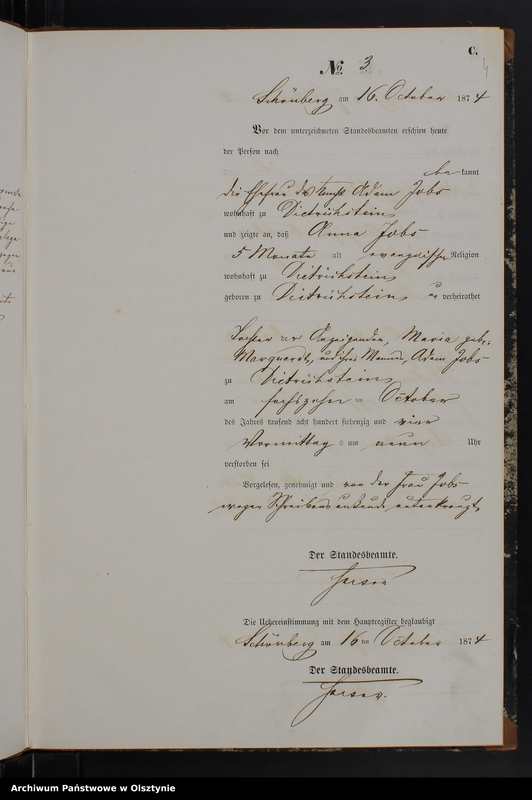 C.
№ 3
4
Schönberg am 16. October 1874
Vor dem unterzeichneten Standesbeamten erschien heute
der Person nach
bekannt
die Ehefrau des Adam Jobs
wohnhaft zu Dietrichstein
und zeigte an, daß Anna Jobs
5 Monate alt evangelischer Religion
wohnhaft zu Dietrichstein
geboren zu Dietrichstein unverheirathet
Tochter der Anzeigenden, Maria geb.
Marquardt, und ihres Mannes, Adam Jobs
zu Dietrichstein
am sechszehn ten October
des Jahres tausend acht hundert siebenzig und vier
Vormittags um neun Uhr
verstorben sei
Vorgelesen, genehmigt und von der Frau Jobs
wegen Schreibensunkunde unterkreuzt
Der Standesbeamte.
Die Uebereinstimmung mit dem Hauptregister beglaubigt
Schönberg am 16 ten October 1874
Der Standesbeamte.
Archiwum Państwowe w Olsztynie